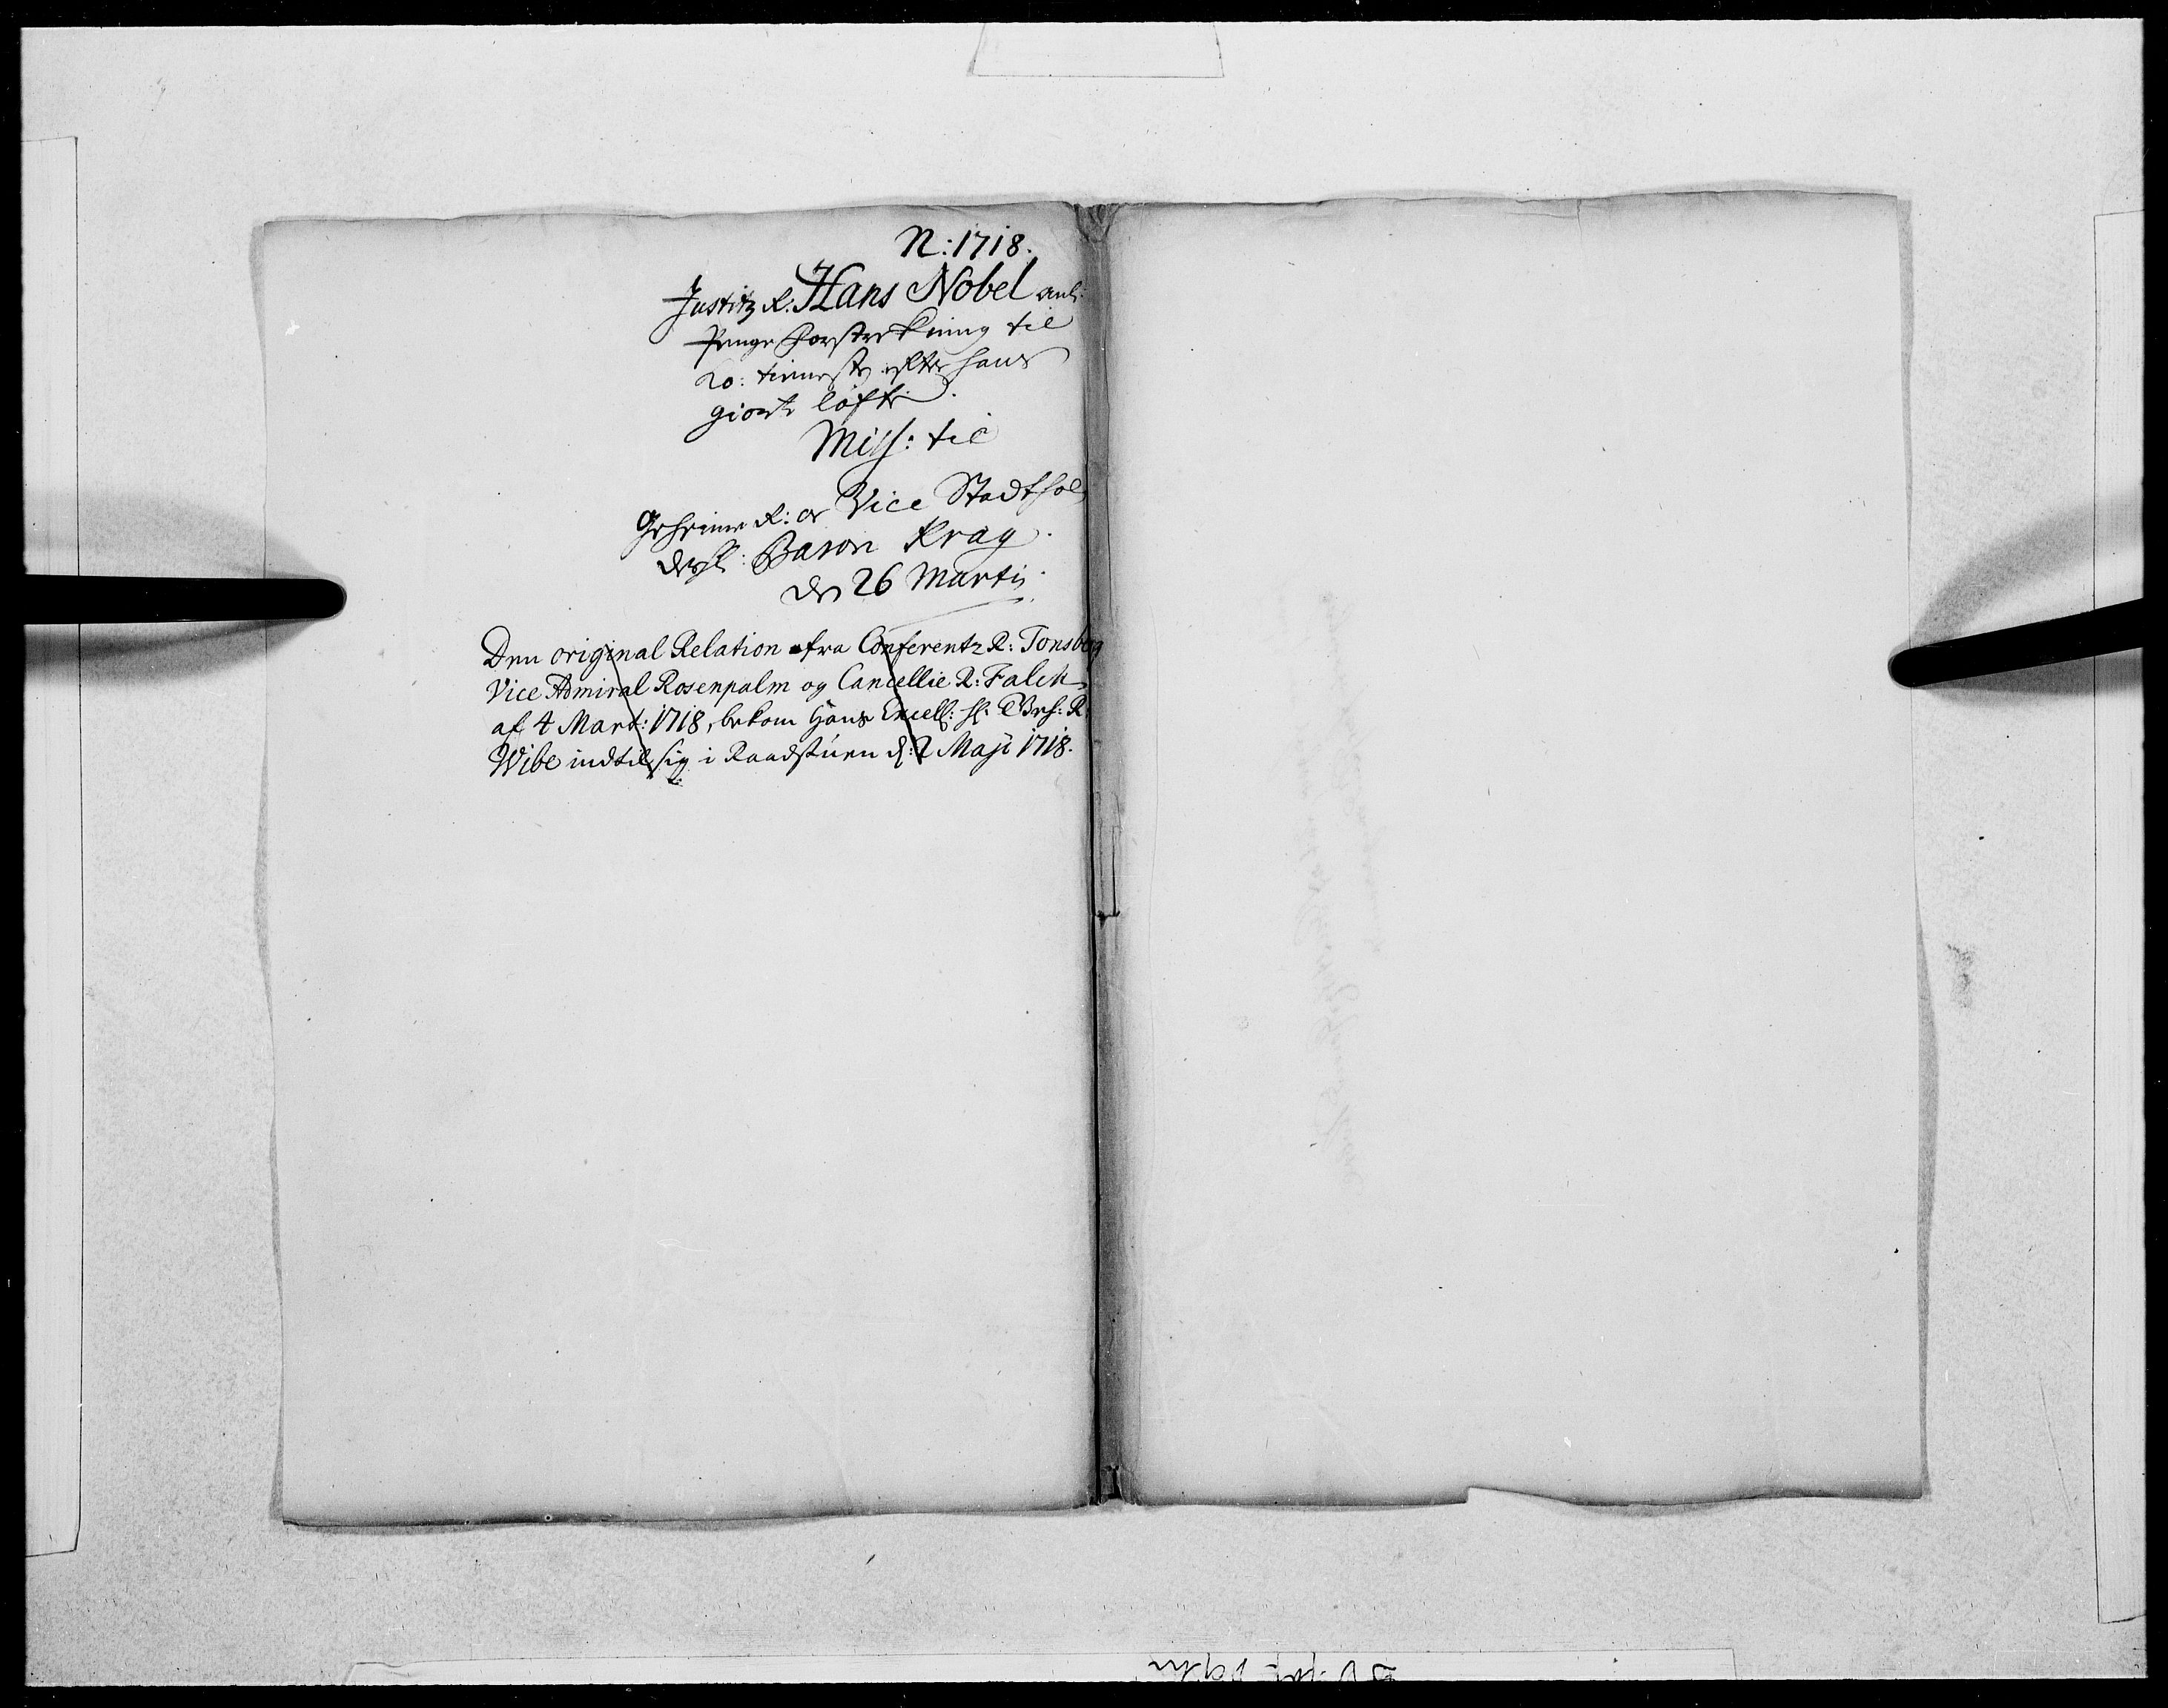 N: 1718.
Justitz R: Hans Nobel anl:
Penge Forstrekning til
Ko: tieneste efter hans
giorte löfte.
Miss: til
Geheime R: oc Vice Stadthol
dersl: Baron Krag.
den 26 Martij.
Den original Relation fra Conferentz R: Tonsberg
Vice Admiral Rosenpalm og Cancellie R: Falck
af 4 Mart: 1718, bekom Hans Excell: Hr: Geh: R:
Wibe ind til sig i Raadstuen d: 2 Maji 1718.